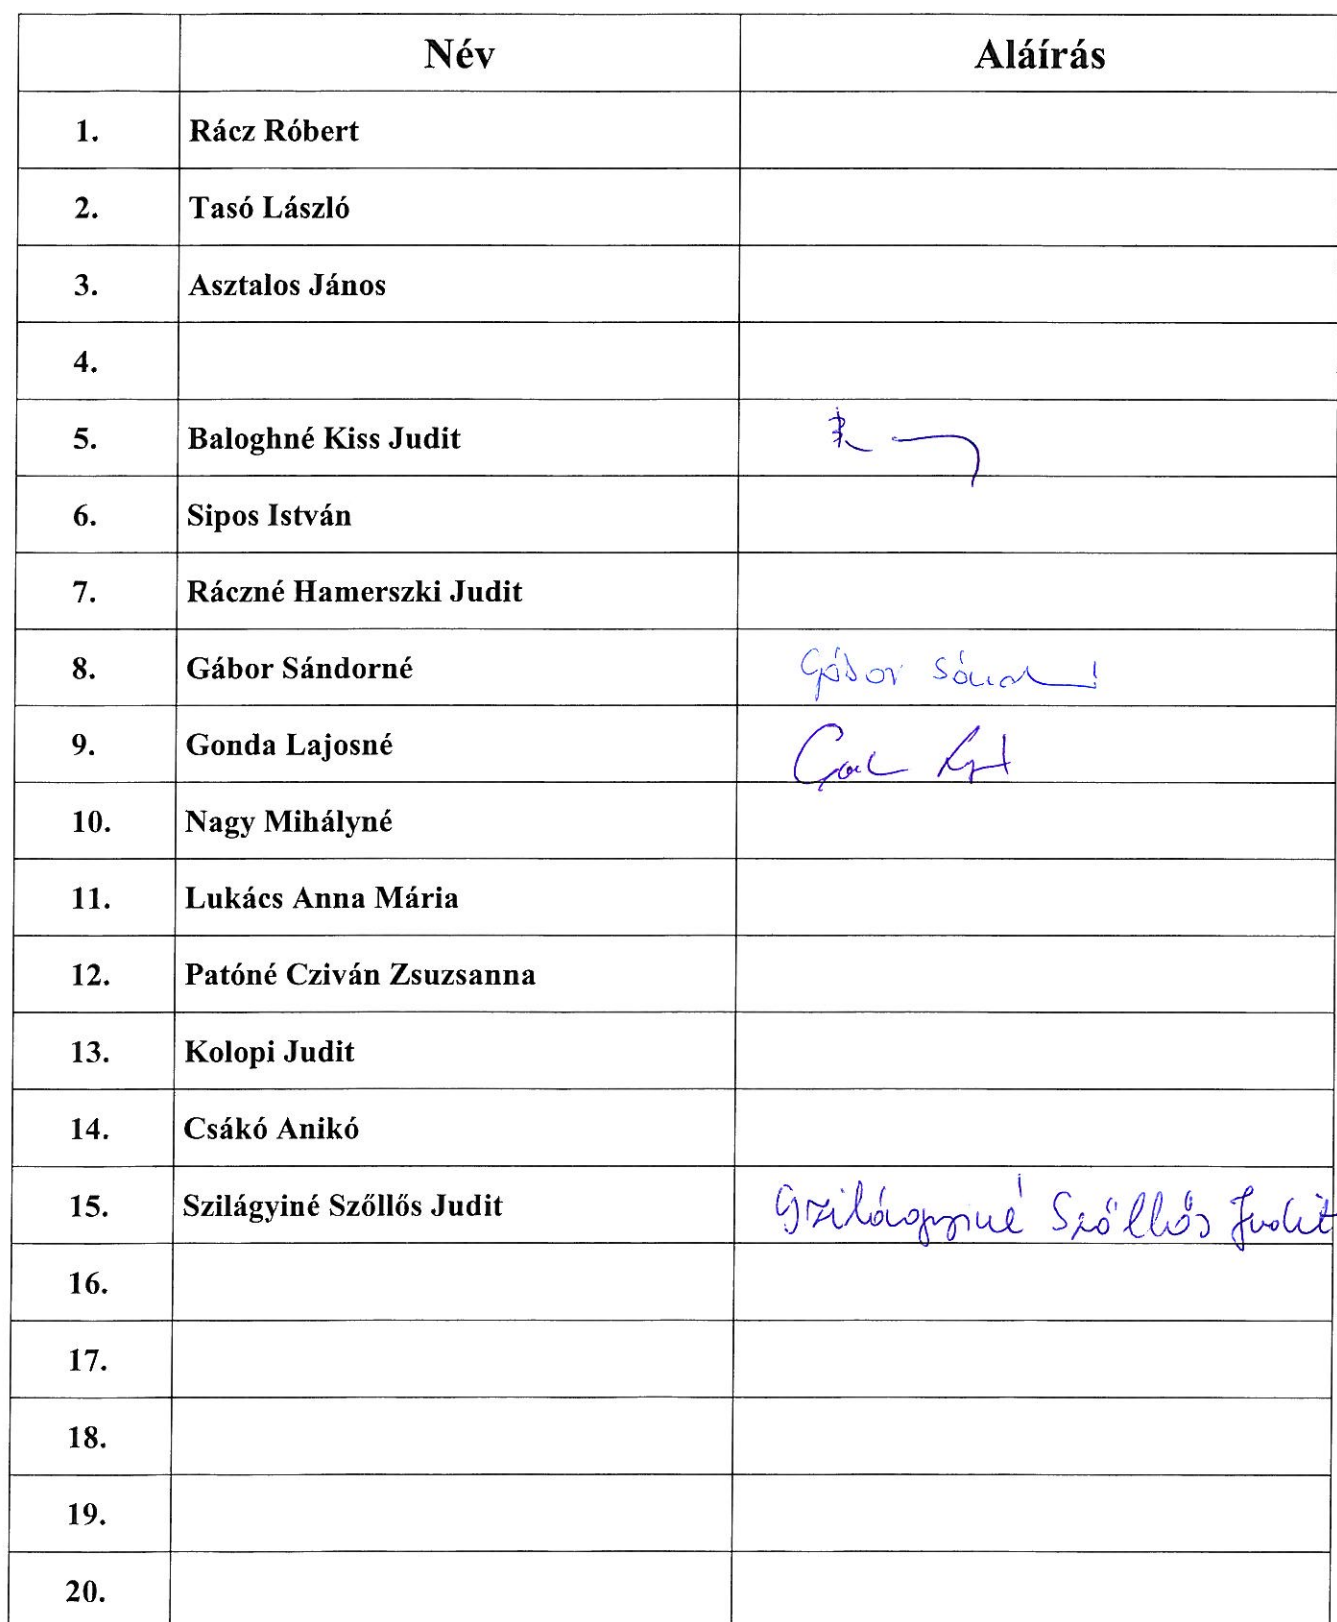 Név Aláírás
1. Rácz Róbert
2. Tasó László
3. Asztalos János
4.
5. Baloghné Kiss Judit
6. Sipos István
7. Ráczné Hamerszki Judit
8. Gábor Sándorné Gábor
9. Gonda Lajosné
10. Nagy Mihályné
11. Lukács Anna Mária
12. Patóné Cziván Zsuzsanna
13. Kolopi Judit
14. Csákó Anikó
15. Szilágyiné Szőllős Judit Szilágyiné Szőllős Judit
16.
17.
18.
19.
20.